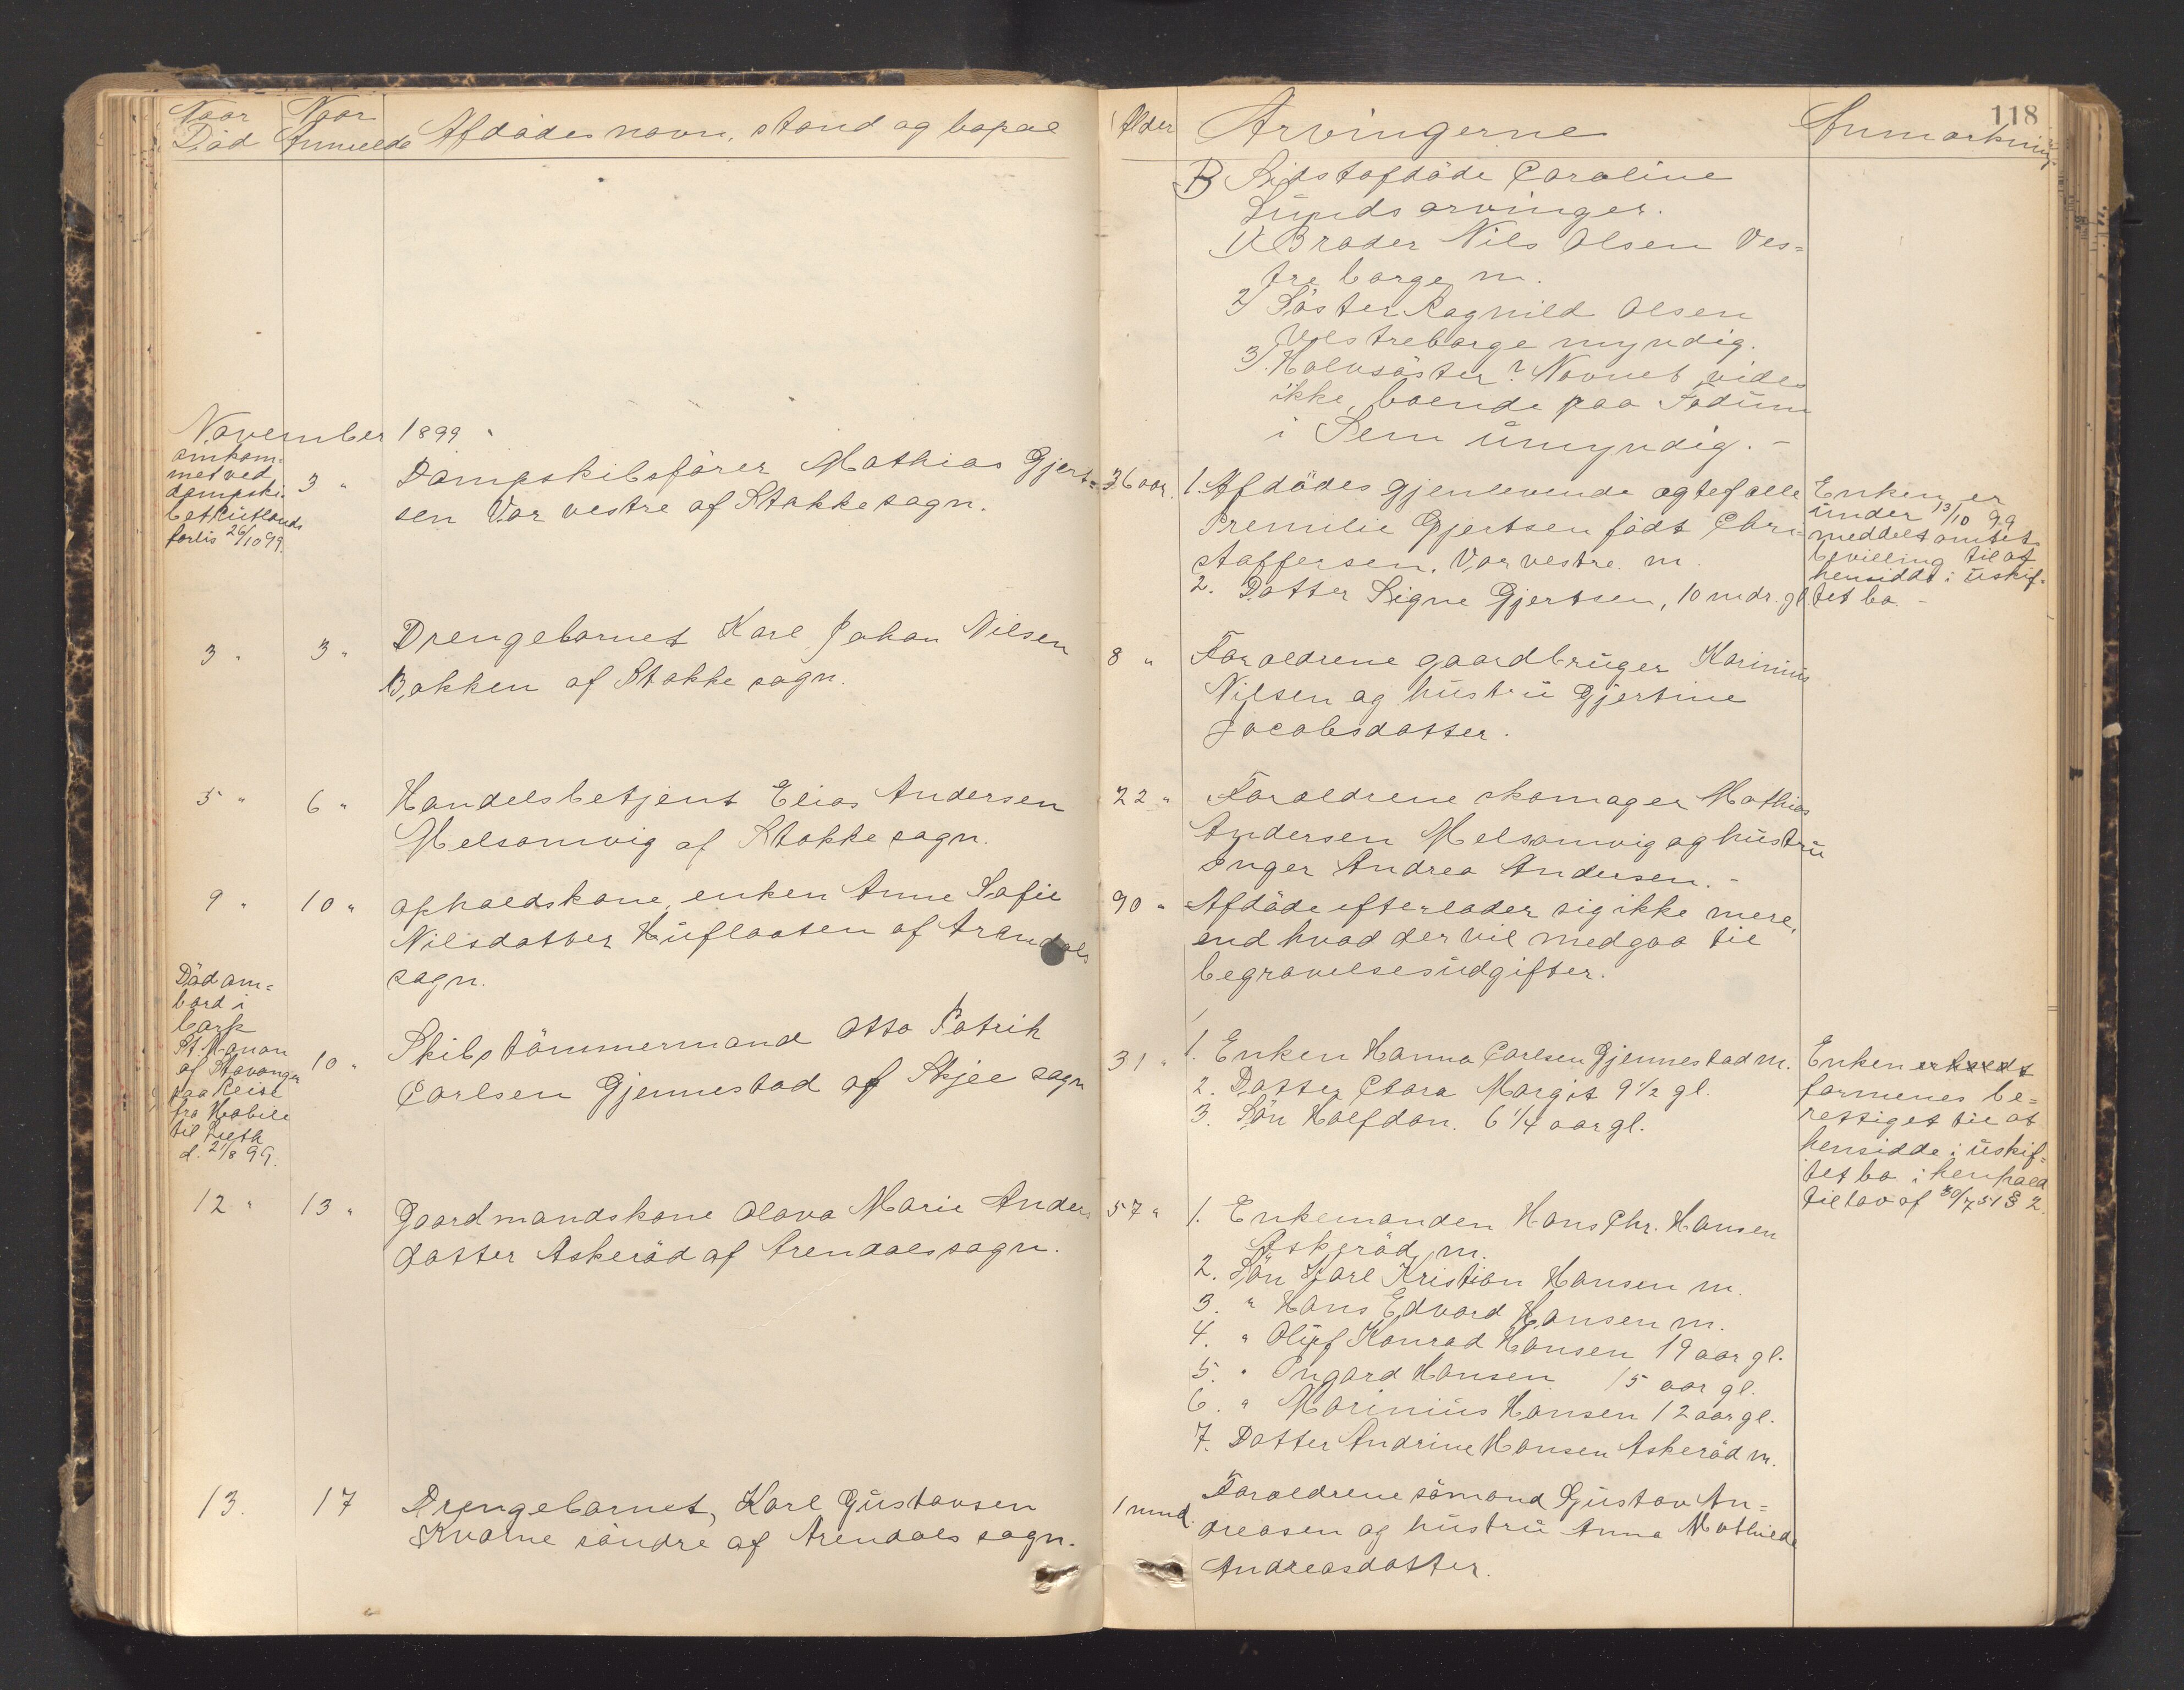 Naar Død
Naar Anmeldt
Afdødes navn, stand og bopæl
Alder
Arvingerne
Anmærkning
118
B Sidstafdøde Caroline
Lunds arvinger.
1) Broder Nils Olsen Ves=
tre borge m.
2) Søster Ragnild Olsen
Vestreborge myndig.
3). Halvsøster? Navnet vides
ikke, boende paa Fadum
i Sem umyndig. -
November 1899
omkom=
met ved
dampski=
bet Rutlands
forlis 26/10 99.
3 "
Dampskibsfører Mathias Gjert=
sen Vær vestre af Stokke sogn.
36 aar.
1. Afdødes gjenlevende ægtefælle
Premilie Gjertsen født Chri=
stoffersen. Vær vestre m.
2. Datter Signe Gjertsen, 10 mdr. gl.
Enken er
under 13/10 99
meddelt amtets
bevilling til at
hensidde i uskif=
tet bo. -
3 "
3 "
Drengebarnet Karl Johan Nilsen
Bakken af Stokke sogn.
8 "
Forældrene gaardbruger Karinius
Nilsen og hustru Gjertine
Jacobsdatter.
5 "
6 "
Handelsbetjent Elias Andersen
Melsomvig af Stokke sogn.
22 "
Forældrene skomager Mathias
Andersen Melsomvig og hustru
Inger Andrea Andersen. -
9 "
10 "
opholdskone, enken Anne Sofie
Nilsdatter Huflaaten af Arendals
sogn.
90 "
Afdøde efterlader sig ikke mere,
end hvad der vil medgaa til
begravelsesudgifter.
Død om=
bord i
bark
St. Manan
af Stavanger
paa Reise
fra Mobile
til Leith
d. 21/8 99.
10 "
Skibstømmermand Otto Patrik
Carlsen Gjennestad af Skjee sogn
31 "
1. Enken Hanna Carlsen Gjennestad m.
2. Datter Clara Margit 9 1/2 gl.
3. Søn Halfdan. 6 1/4 aar gl.
Enken
formenes be=
rettiget til at
hensidde i uskif=
tet bo i henhold
til lov af 30/7 51 § 2.
12 "
13 "
Gaardmandskone Olava Marie Anders
datter Askerød af Arendals sogn.
57 "
1. Enkemanden Hans Chr. Hansen
Askerød m.
2. Søn Karl Kristian Hansen m.
3. " Hans Edvard Hansen m.
4. " Oluf Konrad Hansen 19 aar gl.
5. " Ingard Hansen 15 aar gl.
6. " Marinius Hansen 12 aar gl.
7. Datter Andrine Hansen Askerød m.
13.
17
Drengebarnet, Karl Gustavsen
Kvarne søndre af Arendals sogn.
1 mnd.
Forældrene sømand Gustav An=
dreasen og hustru Anna Mathilde
Andreasdatter.